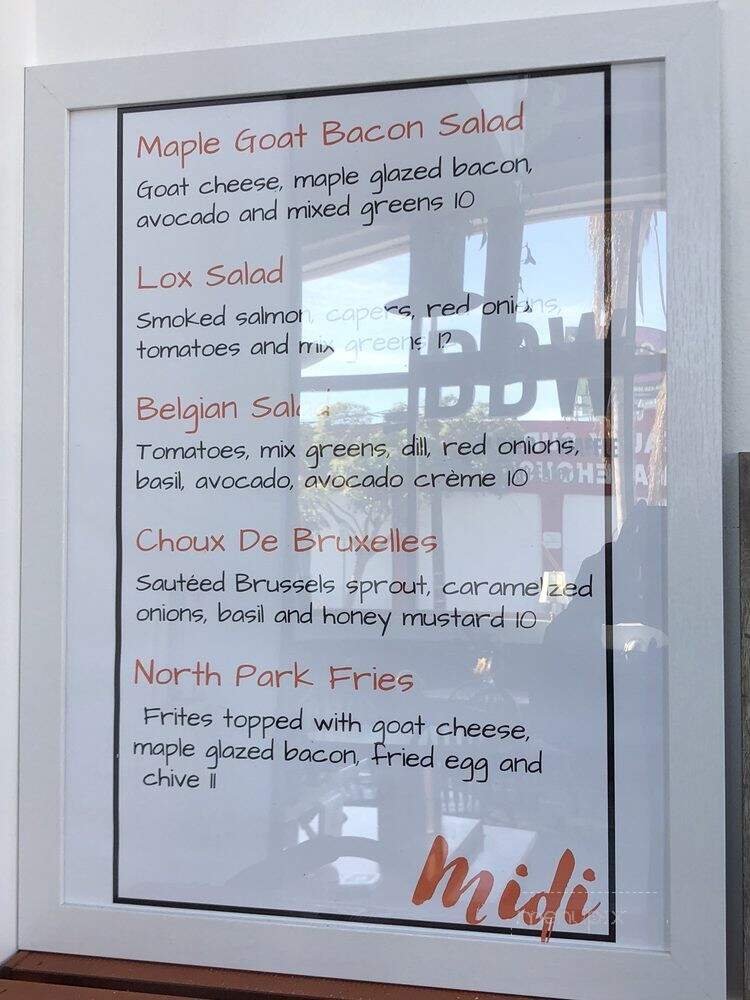 Maple Goat Bacon Salad
Goat cheese, maple glazed bacon,
avocado and mixed greens 10
Lox Salad
Smoked salmon, capers, red onions,
tomatoes and mix greens 12
Belgian Salad
Tomatoes, mix greens, dill, red onions,
basil, avocado, avocado crème 10
Choux De Bruxelles
Sautéed Brussels sprout, caramelzed
onions, basil and honey mustard 10
North Park Fries
Frites topped with goat cheese,
maple glazed bacon, fried egg and
chive 11
Midi